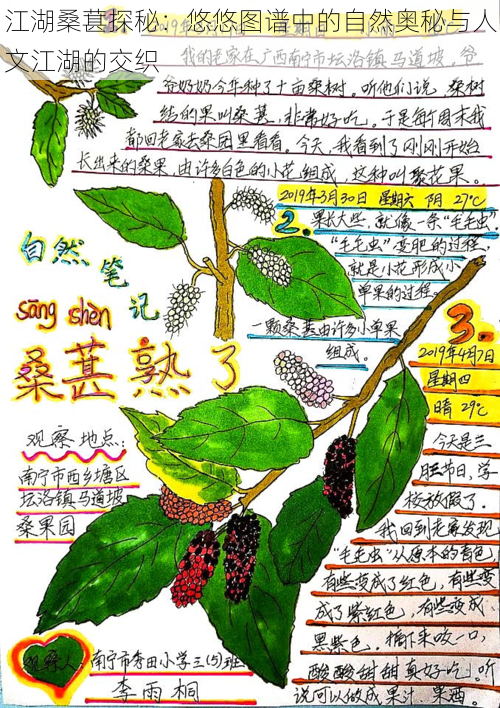 江湖桑葚探秘：悠悠图谱中的自然奥秘与人
文江湖的交织
我的老家在广西南宁市坛洛镇马道坡，爷
爷奶奶今年种了十亩桑树。听他们说，桑树
结的果叫桑葚，非常好吃。于是每个周末我
都回老家去桑园里看看。今天，我看到了刚刚开始
长出来的桑果，由许多白色的小花组成，这种叫聚花果。
2019年3月30日 星期六 阴 27℃
2.
果长大些，就像一条“毛毛虫”，
“毛毛虫”变肥的过程，
就是小花形成小
单果的过程。
一颗桑葚由许多小单果
组成。
自然笔记
sāng shèn
桑葚熟了
3.
2019年4月7日
星期四
晴 29℃
今天是三
月三节日，学
校放假了。
我回到老家发现
“毛毛虫”从原本的青色，
有些变成了红色，有些变
成了紫红色，有些变成
黑紫色。摘下来咬一口，
酸酸甜甜真好吃！听
说可以做成果汁、果酒。
观察地点：
南宁市西乡塘区
坛洛镇马道坡
桑果园
观察人
南宁市秀田小学三（5）班
李雨桐